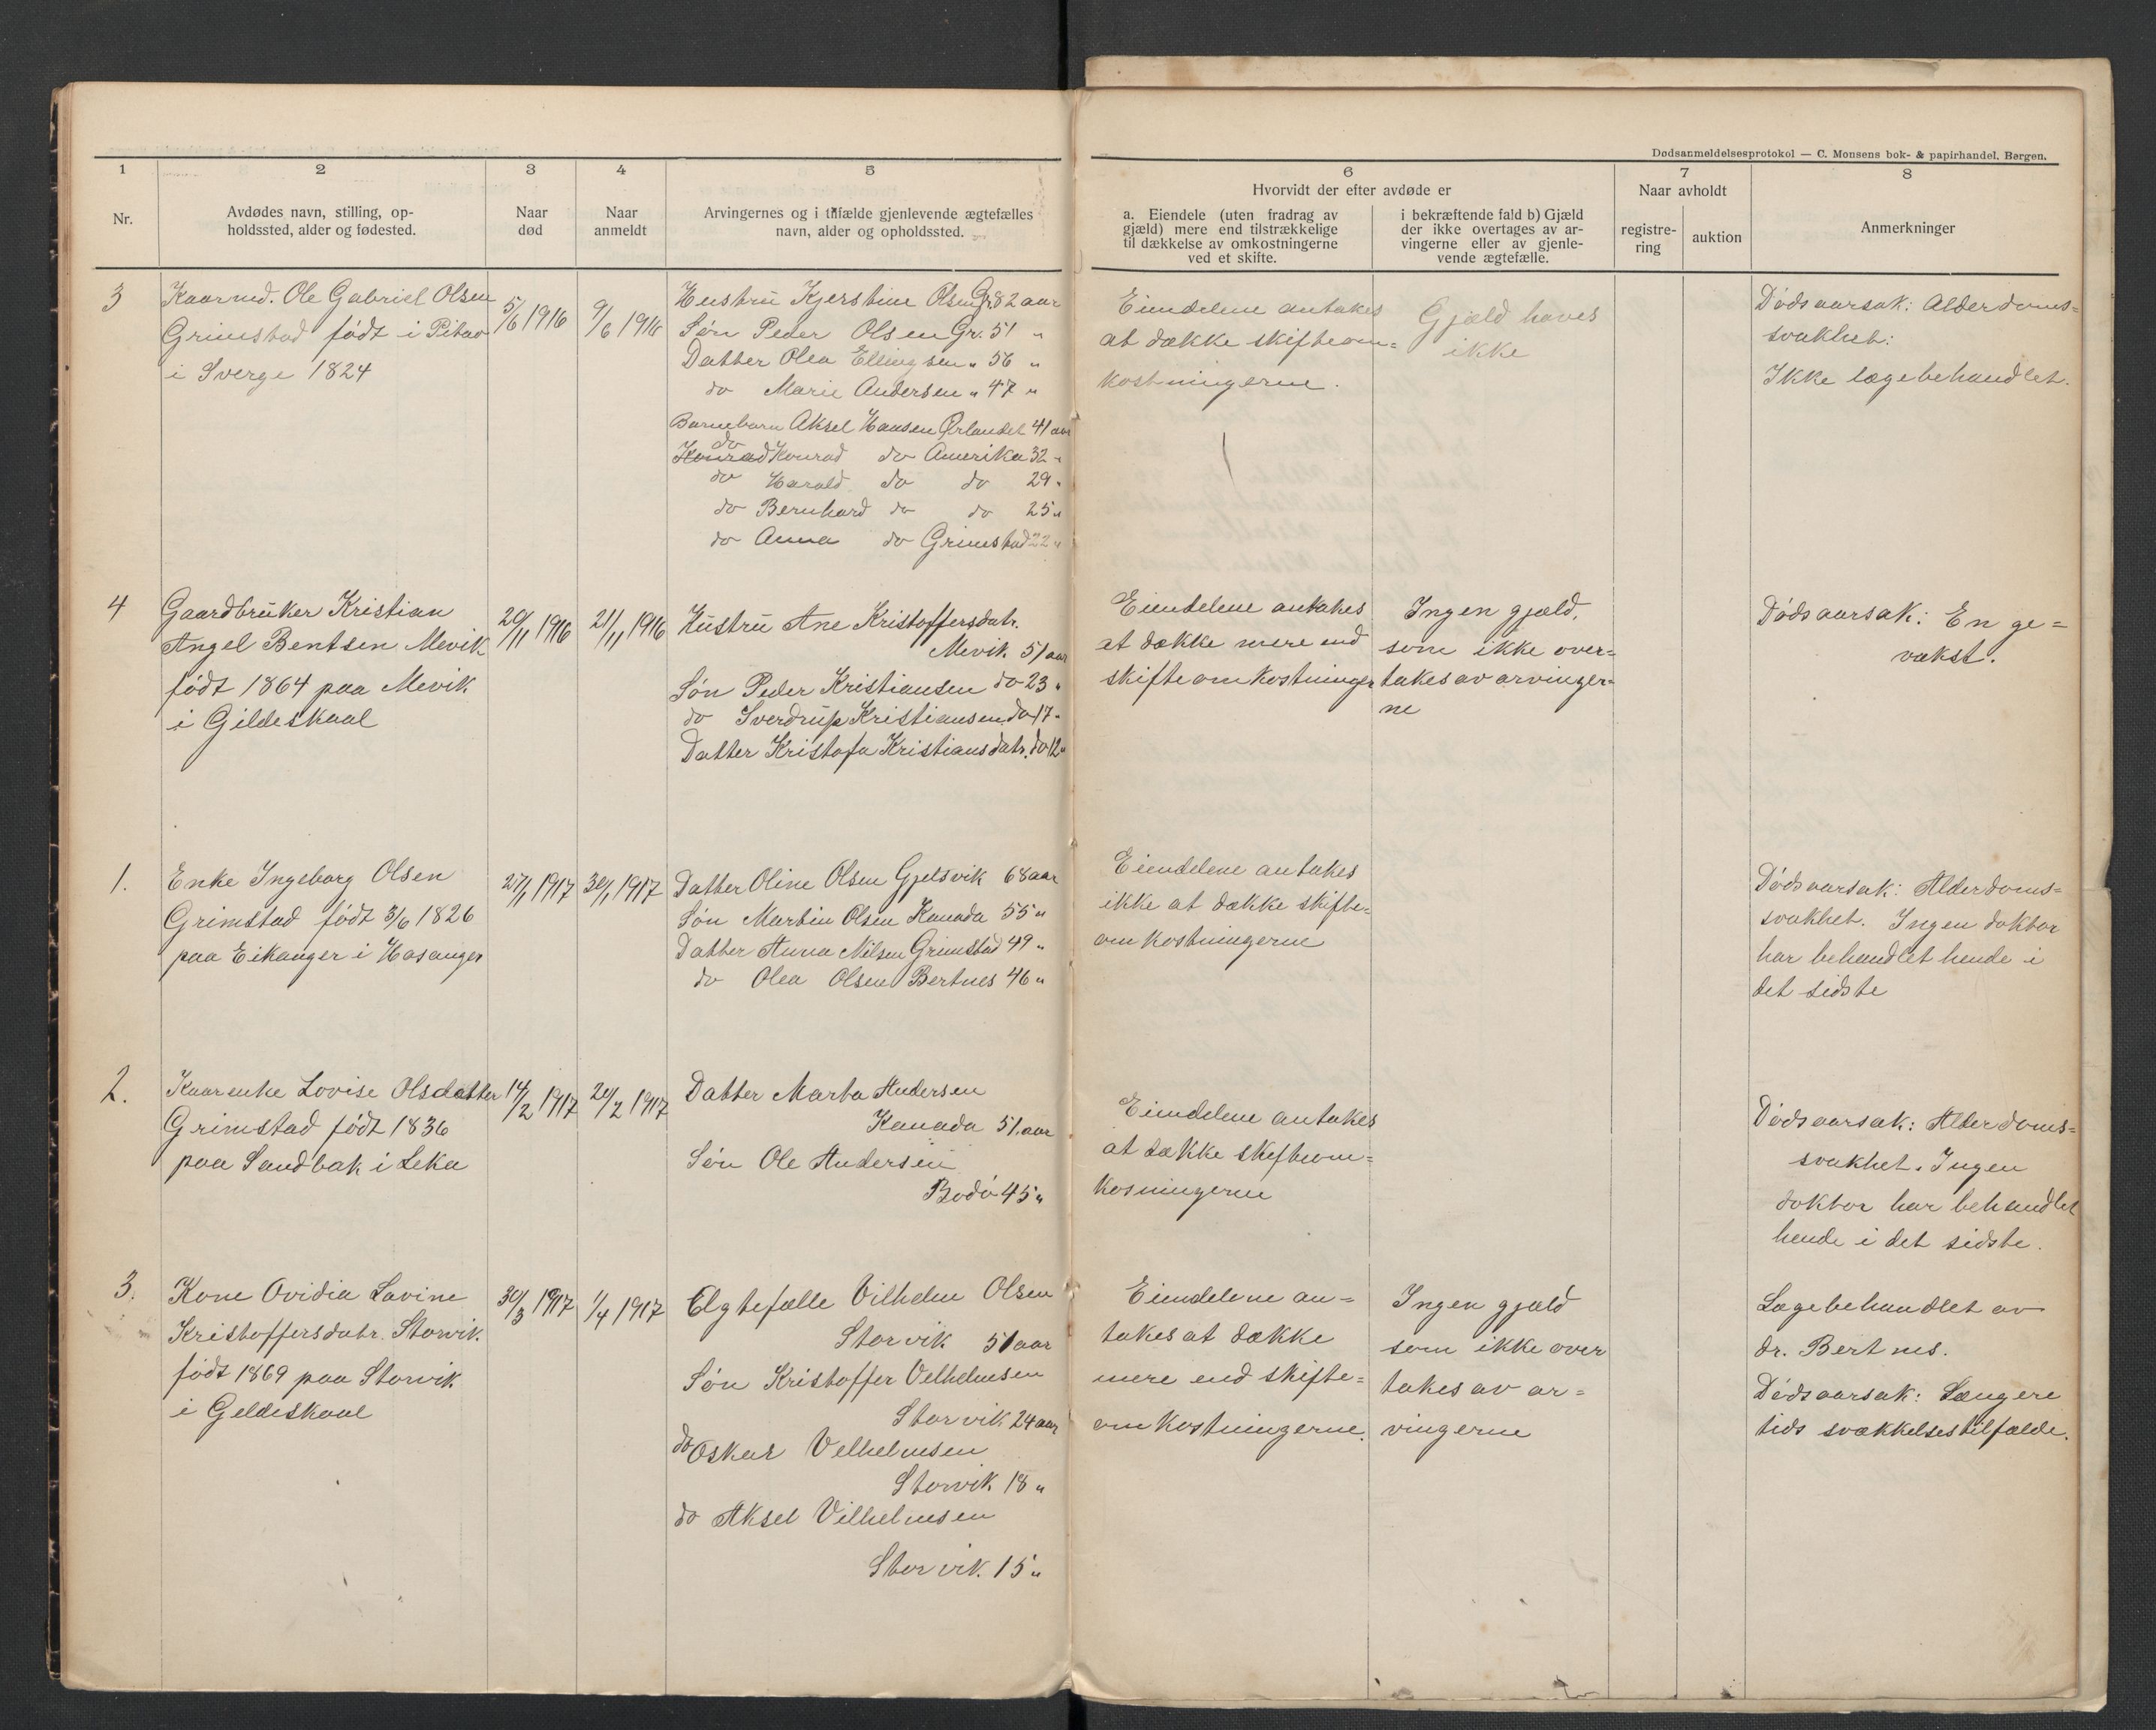 Dødsanmeldelsesprotokol — C. Monsens bok- & papirhandel. Bergen.
1 2 3 4 5 6 7 8
Nr.
Avdødes navn, stilling, op-
holdssted, alder og fødested.
Naar
død
Naar
anmeldt
Arvingernes og i tilfælde gjenlevende ægtefælles
navn, alder og opholdssted.
Hvorvidt der efter avdøde er
a. Eiendele (uten fradrag av
gjæld) mere end tilstrækkelige
til dækkelse av omkostningerne
ved et skifte.
i bekræftende fald b) Gjæld
der ikke overtages av ar-
vingerne eller av gjenle-
vende ægtefælle.
Naar avholdt
registre-
ring
auktion
Anmerkninger
3
Kaarmd. Ole Gabriel Olsen
Grimstad født i Pitav
i Sverge 1824
5/6 1916
9/6 1916
Hustru Kjerstine Olsen Gr. 82 aar
Søn Peder Olsen Gr. 51 "
Datter Olea Ellingsen " 56 "
do Marie Andersen " 47 "
Barnebarn Aksel Hansen Ørlandet 41 aar
do Konrad do Amerika 32 "
do Harald do do 29 "
do Bernhard do do 25 "
do Anna do Grimstad 22 "
Eiendelene antakes
at dække skifteom=
kostningerne.
Gjæld haves
ikke
Dødsaarsak: Alderdoms=
svakhet:
Ikke lægebehandlet.
4
Gaardbruker Kristian
Angel Bentsen Mevik
født 1864 paa Mevik
i Gildeskaal
20/11 1916
21/11 1916
Hustru Ane Kristoffersdatr.
Mevik 51 aar
Søn Peder Kristiansen do 23 "
do Sverdrup Kristiansen do 17 "
Datter Kristofa Kristiansdatr. do 12 "
Eiendelene antakes
at dække mere end
skifteomkostninger
Ingen gjæld,
som ikke over=
takes av arvinger=
ne
Dødsaarsak: En ge=
vækst.
1.
Enke Ingeborg Olsen
Grimstad født 3/6 1826
paa Eikanger i Hosanger
27/1 1917
30/1 1917
Datter Oline Olsen Gjelsvik 68 aar
Søn Martin Olsen Kanada 55 "
Datter Anna Nilsen Grimstad 49 "
do Olea Olsen Bertnes 46 "
Eiendelene antakes
ikke at dække skifte=
omkostningerne
Dødsaarsak: Alderdoms=
svakhet. Ingen doktor
har behandlet hende i
det sidste
2.
Kaarenke Lovise Olsdatter
Grimstad født 1836
paa Sandbak i Leka
14/2 1917
20/2 1917
Datter Marta Andersen
Kanada 51. aar
Søn Ole Andersen
Bodø 45 "
Eiendelene antakes
at dække skifteom=
kosningerne
Dødsaarsak: Alderdoms=
svakhet. Ingen
doktor har behandlet
hende i det sidste.
3.
Kone Ovidia Lovine
Kristoffersdatr. Storvik
født 1869 paa Storvik
i Geldeskaal
30/3 1917
1/4 1917
Egtefælle Vilhelm Olsen
Storvik 51 aar
Søn Kristoffer Velhelmsen
Storvik 24 aar
do Oskar Velhelmsen
Storvik 18 "
do Aksel Vilhelmsen
Storvik. 15 "
Eiendelene an=
takes at dække
mere end skifte=
omkostningerne.
Ingen gjæld
som ikke over
takes av ar=
vingerne
Lægebehandlet av
dr. Bertnes.
Dødsaarsak: Længere
tids svækkelsestilfælde.